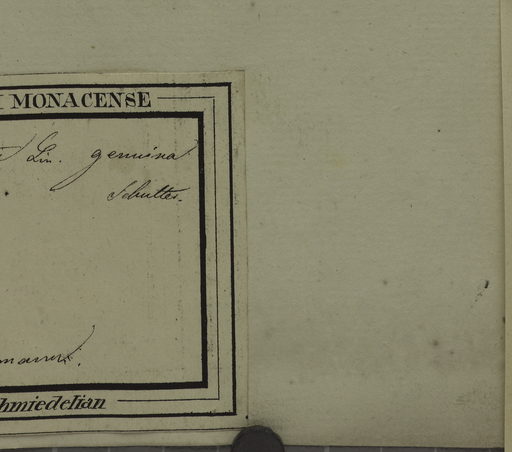 MONACENSE
Lin. genuina
Schultes.
hmiedelian